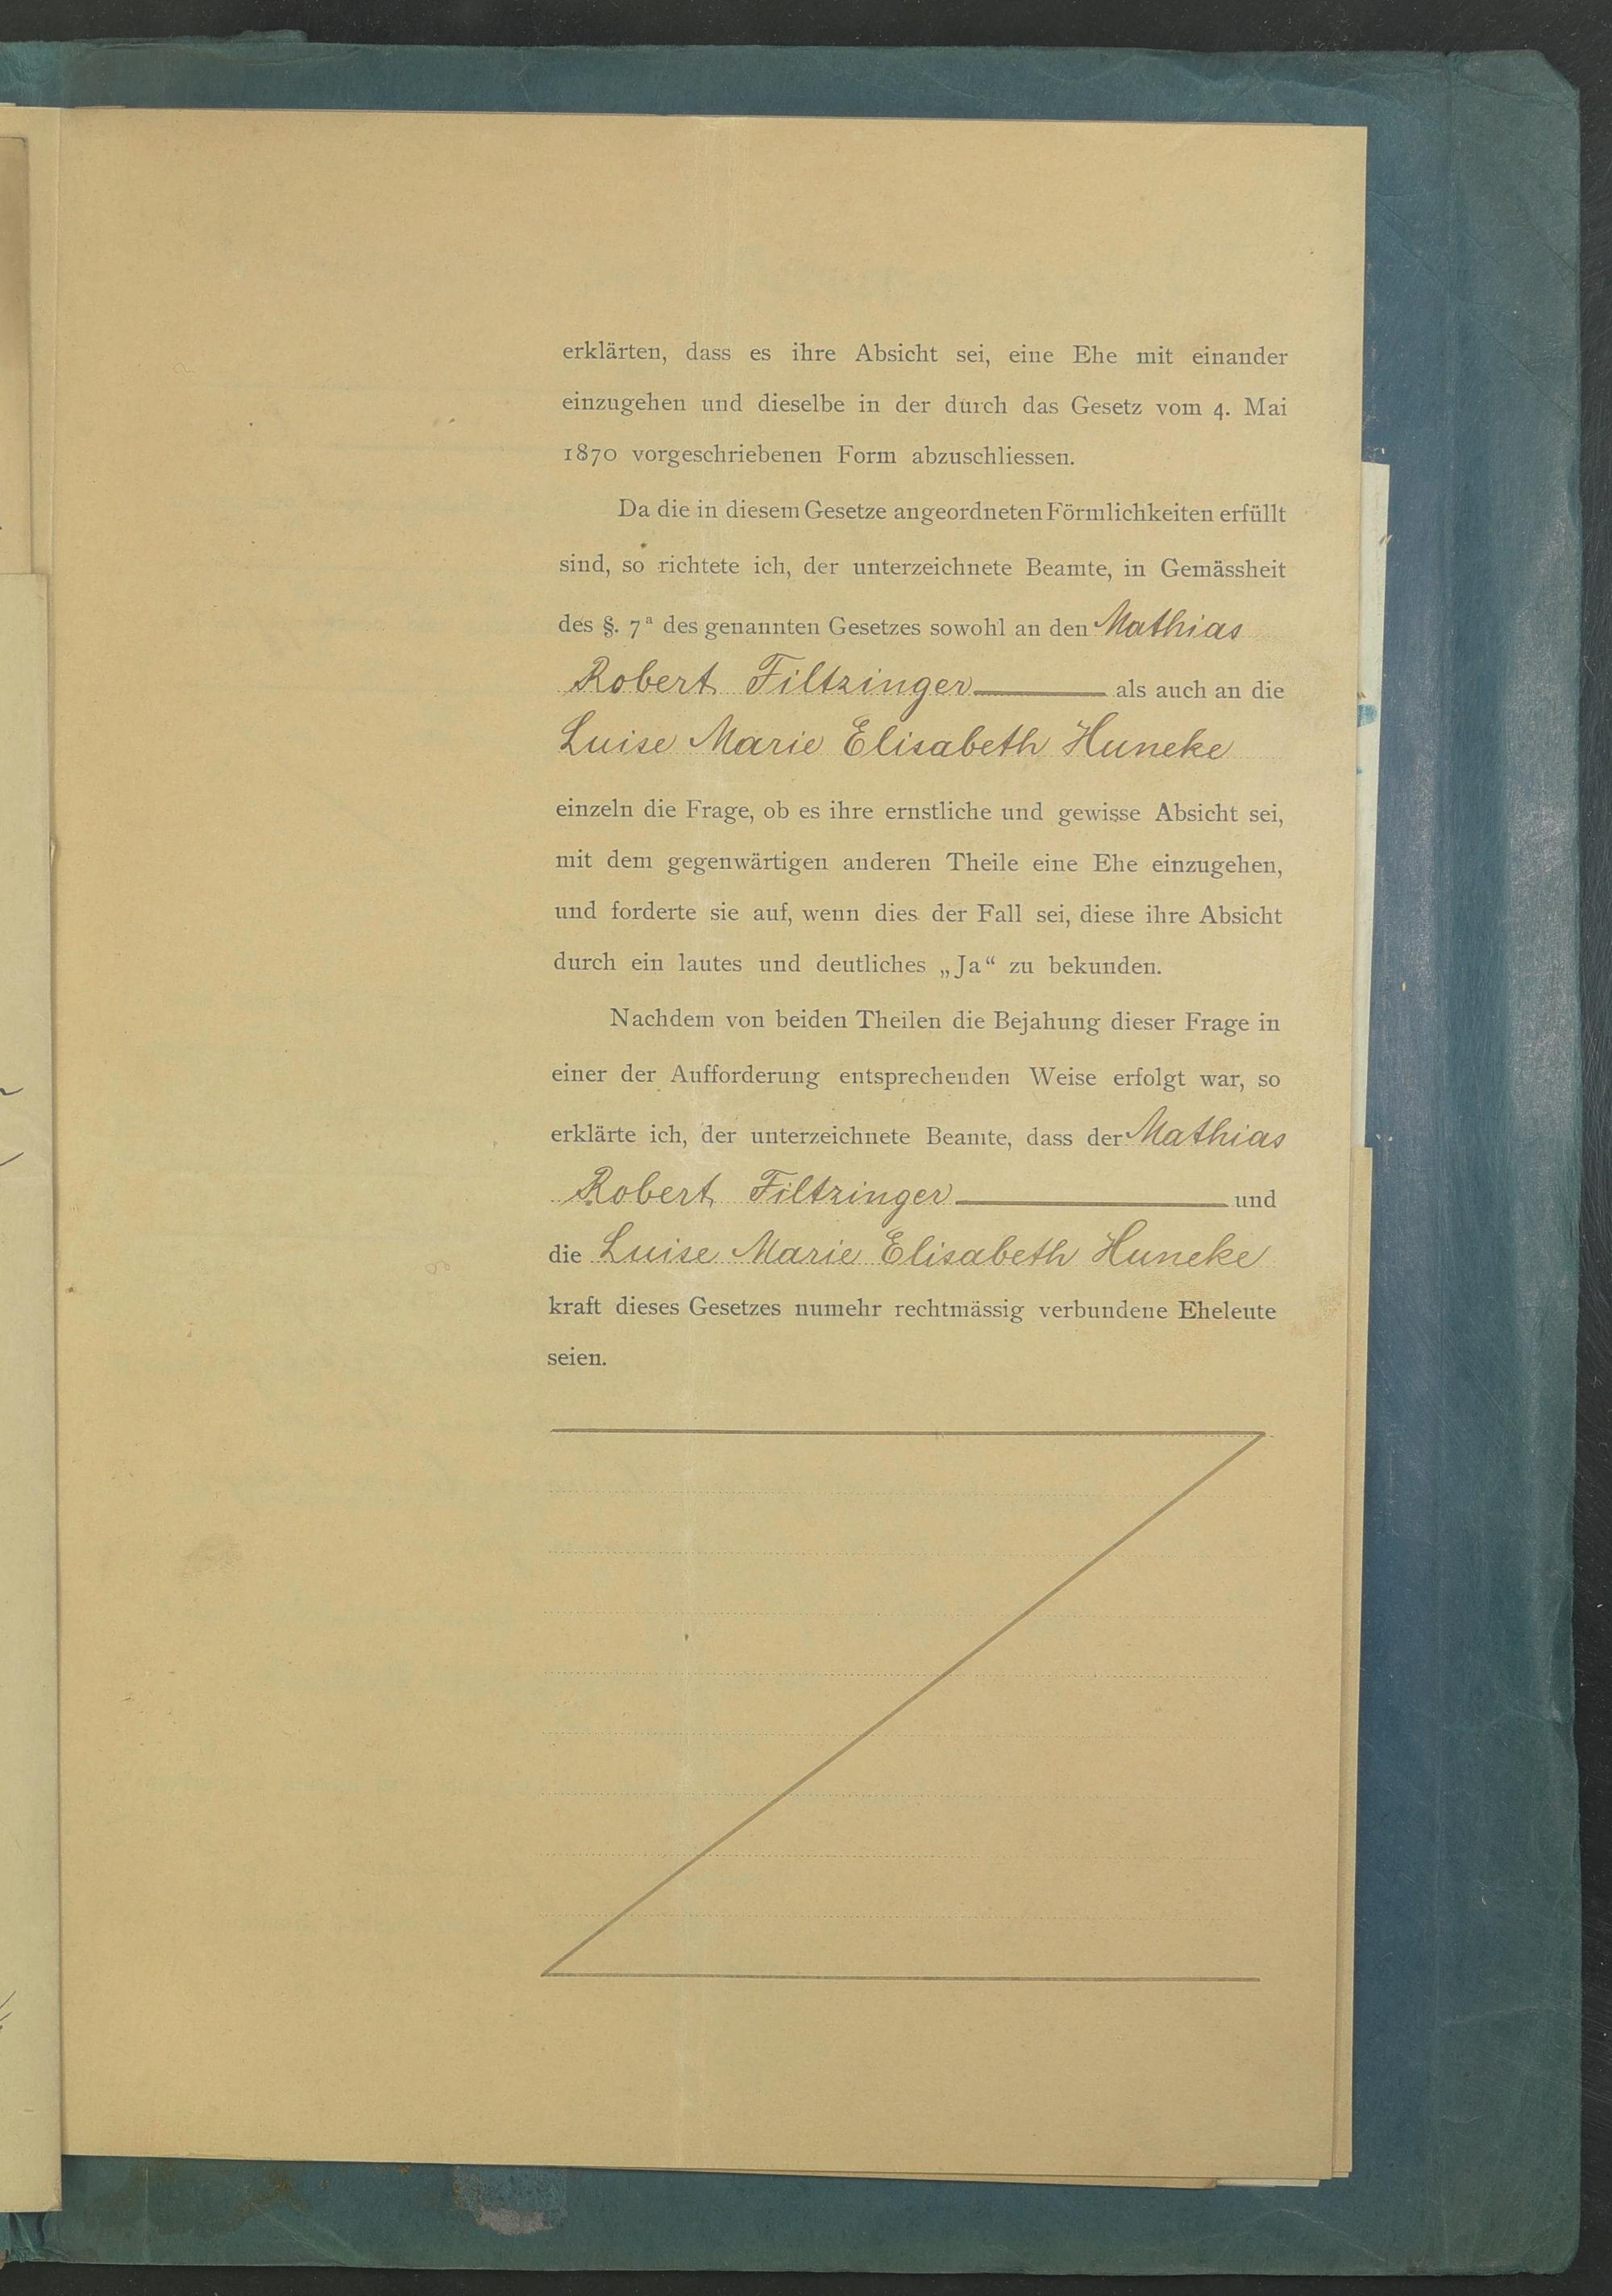 erklärten, dass es ihre Absicht sei, eine Ehe mit einander
einzugehen und dieselbe in der durch das Gesetz vom 4. Mai
1870 vorgeschriebenen Form abzuschliessen.
Da die in diesem Gesetze angeordneten Förmlichkeiten erfüllt
sind, so richtete ich, der unterzeichnete Beamte, in Gemässheit
des §. 7ª des genannten Gesetzes sowohl an den Mathias
Robert Filtzinger als auch an die
Luise Marie Elisabeth Huneke
einzeln die Frage, ob es ihre ernstliche und gewisse Absicht sei,
mit dem gegenwärtigen anderen Theile eine Ehe einzugehen,
und forderte sie auf, wenn dies der Fall sei, diese ihre Absicht
durch ein lautes und deutliches „Ja“ zu bekunden.
Nachdem von beiden Theilen die Bejahung dieser Frage in
einer der Aufforderung entsprechenden Weise erfolgt war, so
erklärte ich, der unterzeichnete Beamte, dass der Mathias
Robert Filtzinger und
die Luise Marie Elisabeth Huneke
kraft dieses Gesetzes numehr rechtmässig verbundene Eheleute
seien.